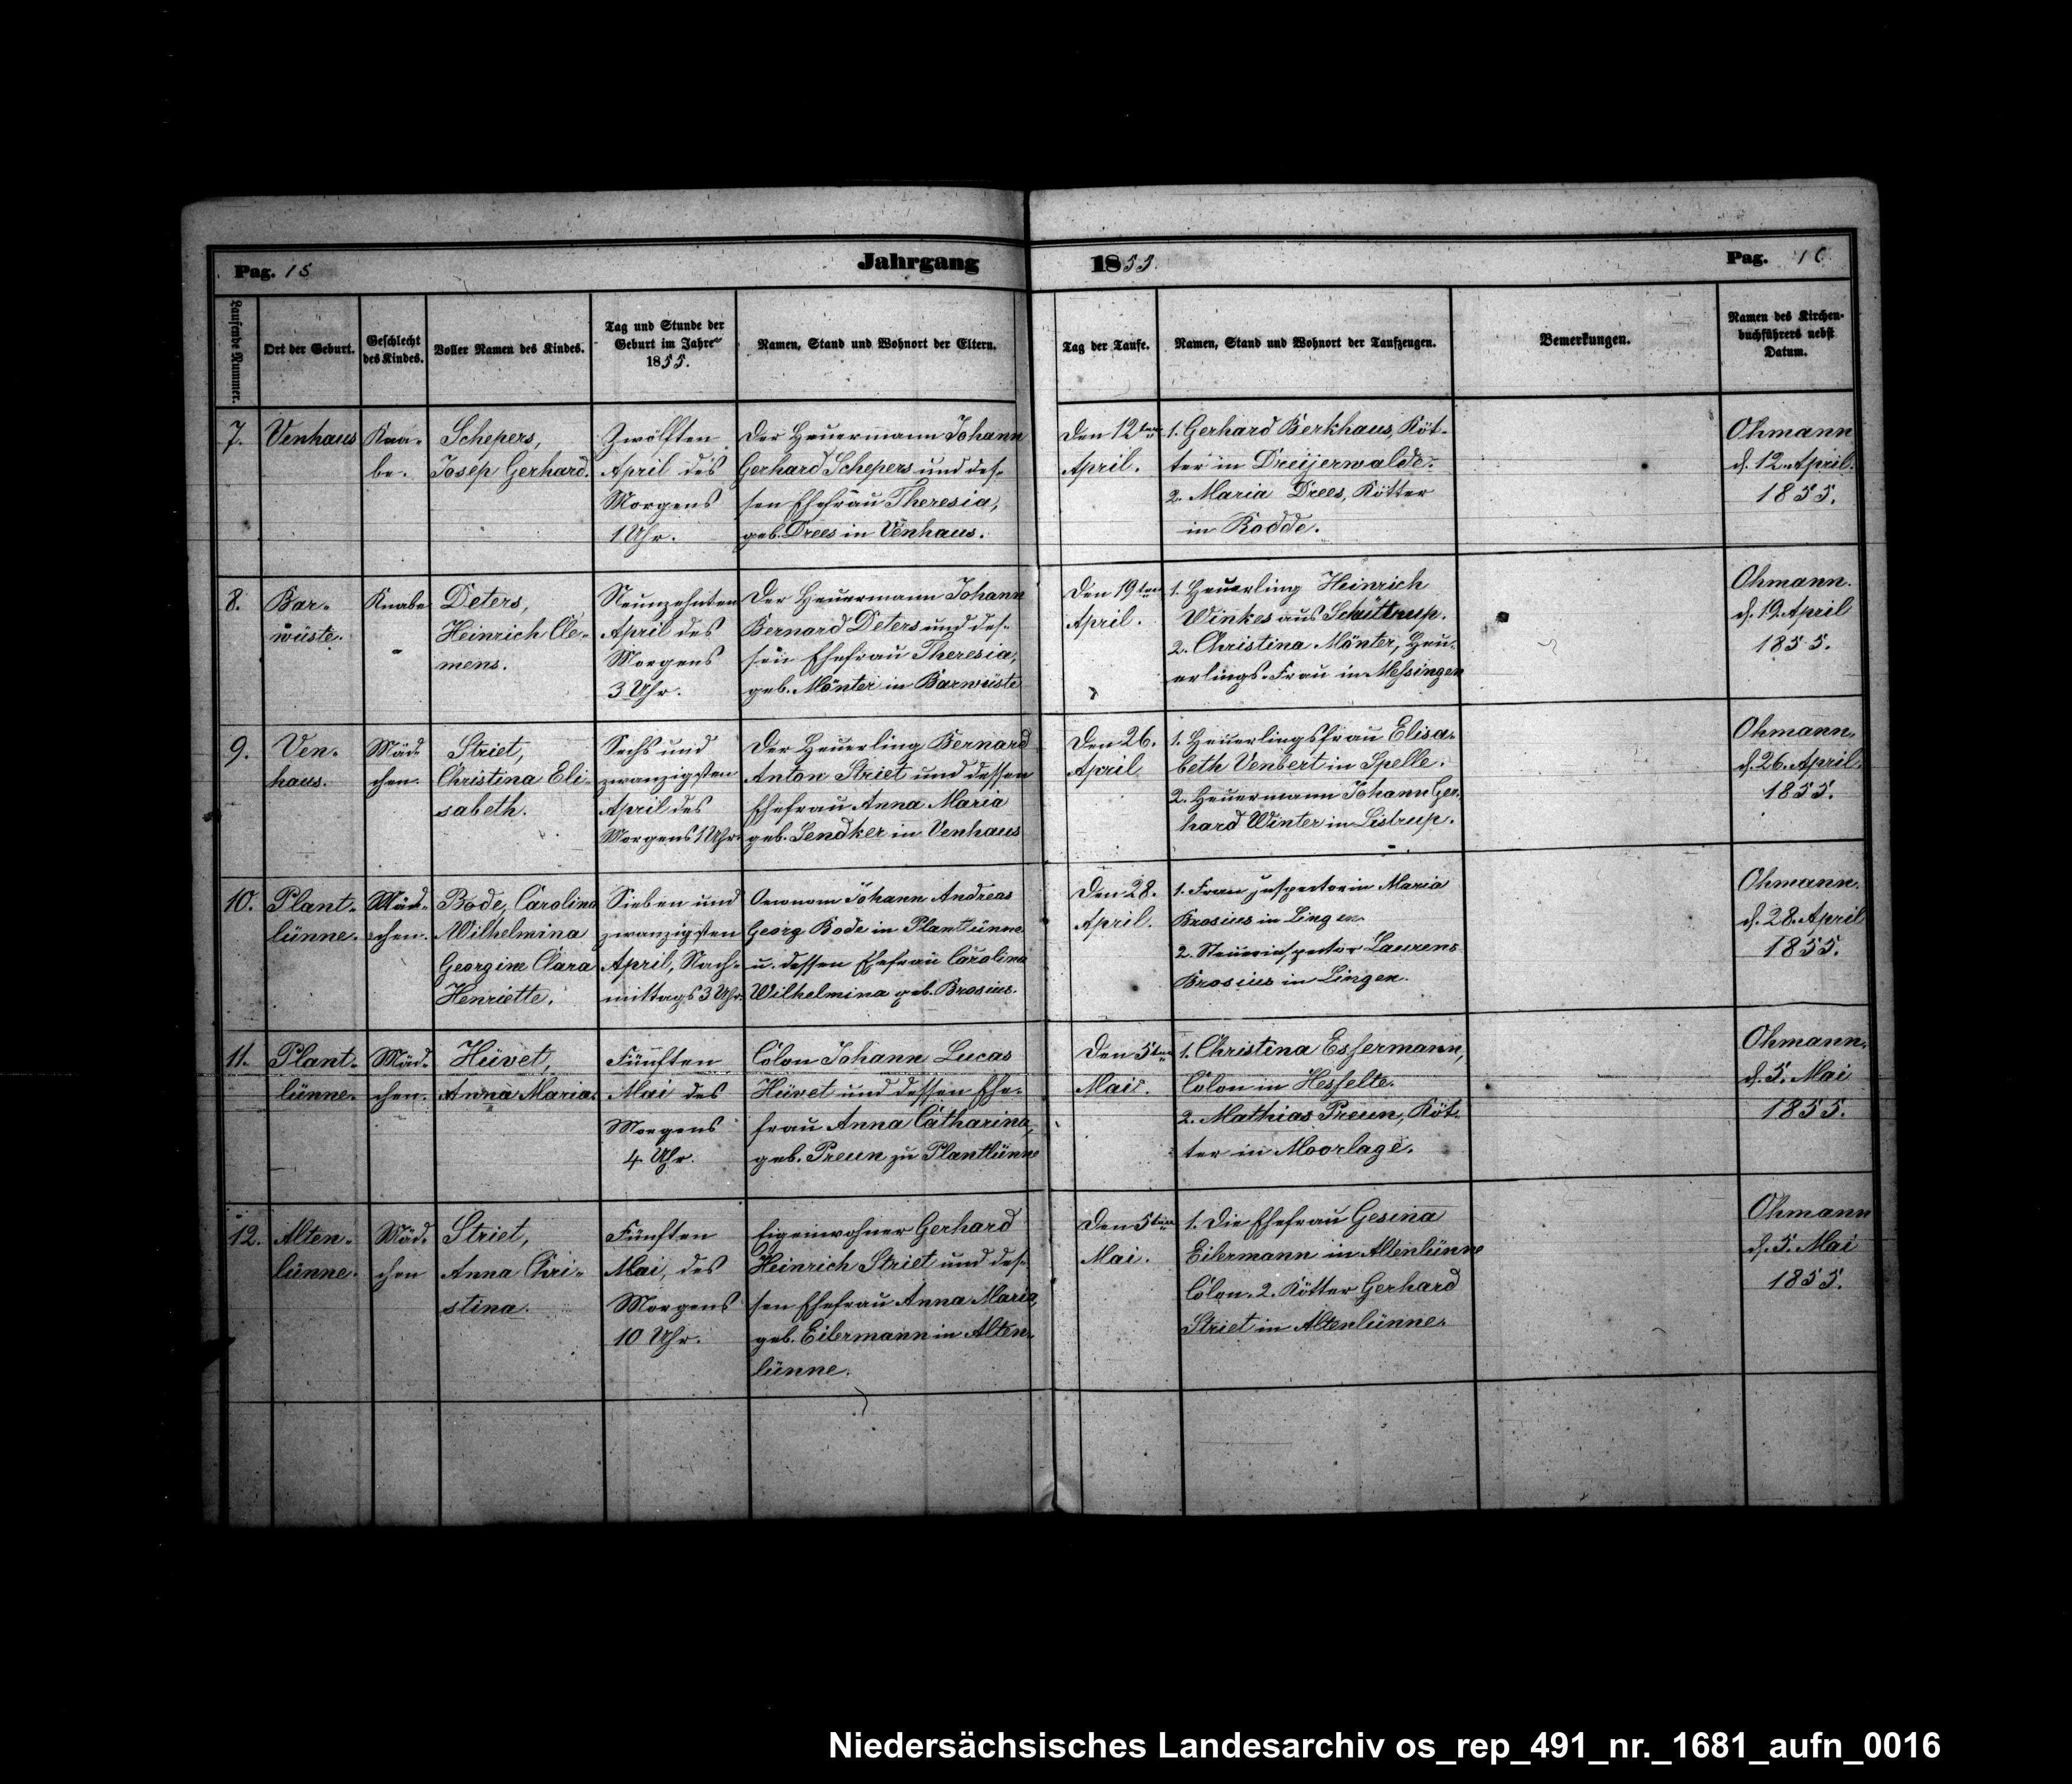 Pag. 15 Jahrgang 1855. Pag. 16
Laufende Nummer.
Ort der Geburt.
Geschlecht
des Kindes.
Voller Namen des Kindes.
Tag und Stunde der
Geburt im Jahre
1855.
Namen, Stand und Wohnort der Eltern.
Tag der Taufe.
Namen, Stand und Wohnort der Taufzeugen.
Bemerkungen.
Namen des Kirchen-
buchführers nebst
Datum.
7.
Venhaus
Kna-
be.
Schepers,
Josep Gerhard.
Zwölften
April des
Morgens
1 Uhr.
Der Heuermann Johann
Gerhard Schepers und des-
sen Ehefrau Theresia,
geb. Drees in Venhaus.
Den 12ten
April.
1. Gerhard Berkhaus, Köt-
ter in Dreijerwalde.
2. Maria Drees, Kötter
in Rodde.
Ohmann
d. 12. April.
1855.
8.
Bar-
wüste.
Knabe
Deters,
Heinrich Cle-
mens.
Neunzehnten
April des
Morgens
3 Uhr.
Der Heuermann Johann
Bernard Deters und des-
sen Ehefrau Theresia,
geb. Mönter in Barwüste
Den 19ten
April.
1. Heuerling Heinrich
Winkes aus Schüttrup.
2. Christina Mönter, Heu-
erlings-Frau in Messingen
Ohmann.
d. 19. April
1855.
9.
Ven-
haus.
Mäd-
chen.
Striet,
Christina Eli-
sabeth.
Sechs und
zwanzigsten
April des
Morgens 1 Uhr.
Der Heuerling Bernard
Anton Striet und dessen
Ehefrau Anna Maria
geb. Sendker in Venhaus
Den 26.
April
1. Heuerlingsfrau Elisa-
beth Venbert in Spelle.
2. Heuermann Johann Ger-
hard Winter in Listrup.
Ohmann.
d. 26. April.
1855.
10.
Plant-
lünne.
Mäd-
chen.
Bode, Carolina
Wilhelmina
Georgine Clara
Henriette.
Sieben und
zwanzigsten
April, Nach-
mittags 3 Uhr.
Oeconom Johann Andreas
Georg Bode in Plantlünne
u. dessen Ehefrau Carolina
Wilhelmina geb. Brosius.
Den 28.
April.
1. Frau Inspectorin Maria
Brosius in Lingen
2. Steuerinspector Laurens
Brosius in Lingen.
Ohmann.
d. 28. April
1855.
11.
Plant-
lünne.
Mäd-
chen.
Hüvet,
Anna Maria.
Fünften
Mai des
Morgens
4 Uhr.
Colon Johann Lucas
Hüvet und dessen Ehe-
frau Anna Catharina,
geb. Preun zu Plantlünne
Den 5ten
Mai.
1. Christina Essermann,
Colon in Hesselte.
2. Mathias Preun, Köt-
ter in Moorlage.
Ohmann.
d. 5. Mai
1855.
12.
Alten-
lünne.
Mäd-
chen
Striet,
Anna Chri-
stina.
Fünften
Mai, des
Morgens
10 Uhr.
Eigenwohner Gerhard
Heinrich Striet und des-
sen Ehefrau Anna Maria,
geb. Eilermann in Alten-
lünne.
Den 5ten
Mai.
1. Die Ehefrau Gesina
Eilermann in Altenlünne
Colon. 2. Kötter Gerhard
Striet in Altenlünne.
Ohmann
d. 5. Mai
1855.
Niedersächsisches Landesarchiv os_rep_491_nr._1681_aufn_0016